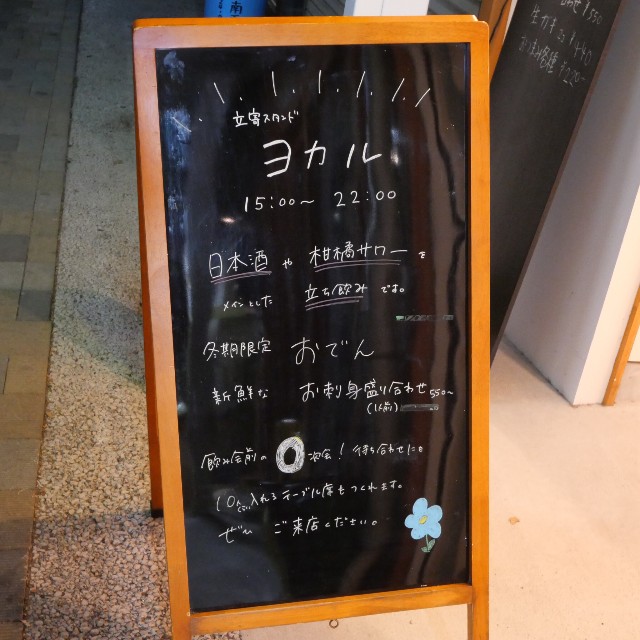 立寄スタンド
ヨカル
15:00〜 22:00
日本酒 や 柑橘サワー を
メインとした 立ち飲み です。
冬期限定 おでん
新鮮な お刺身盛り合わせ 550〜
(1人前)
飲み会前の 0次会! 待ち合わせにも
10人くらい入れるテーブル席もつくれます。
ぜひ ご来店ください。
南
¥550